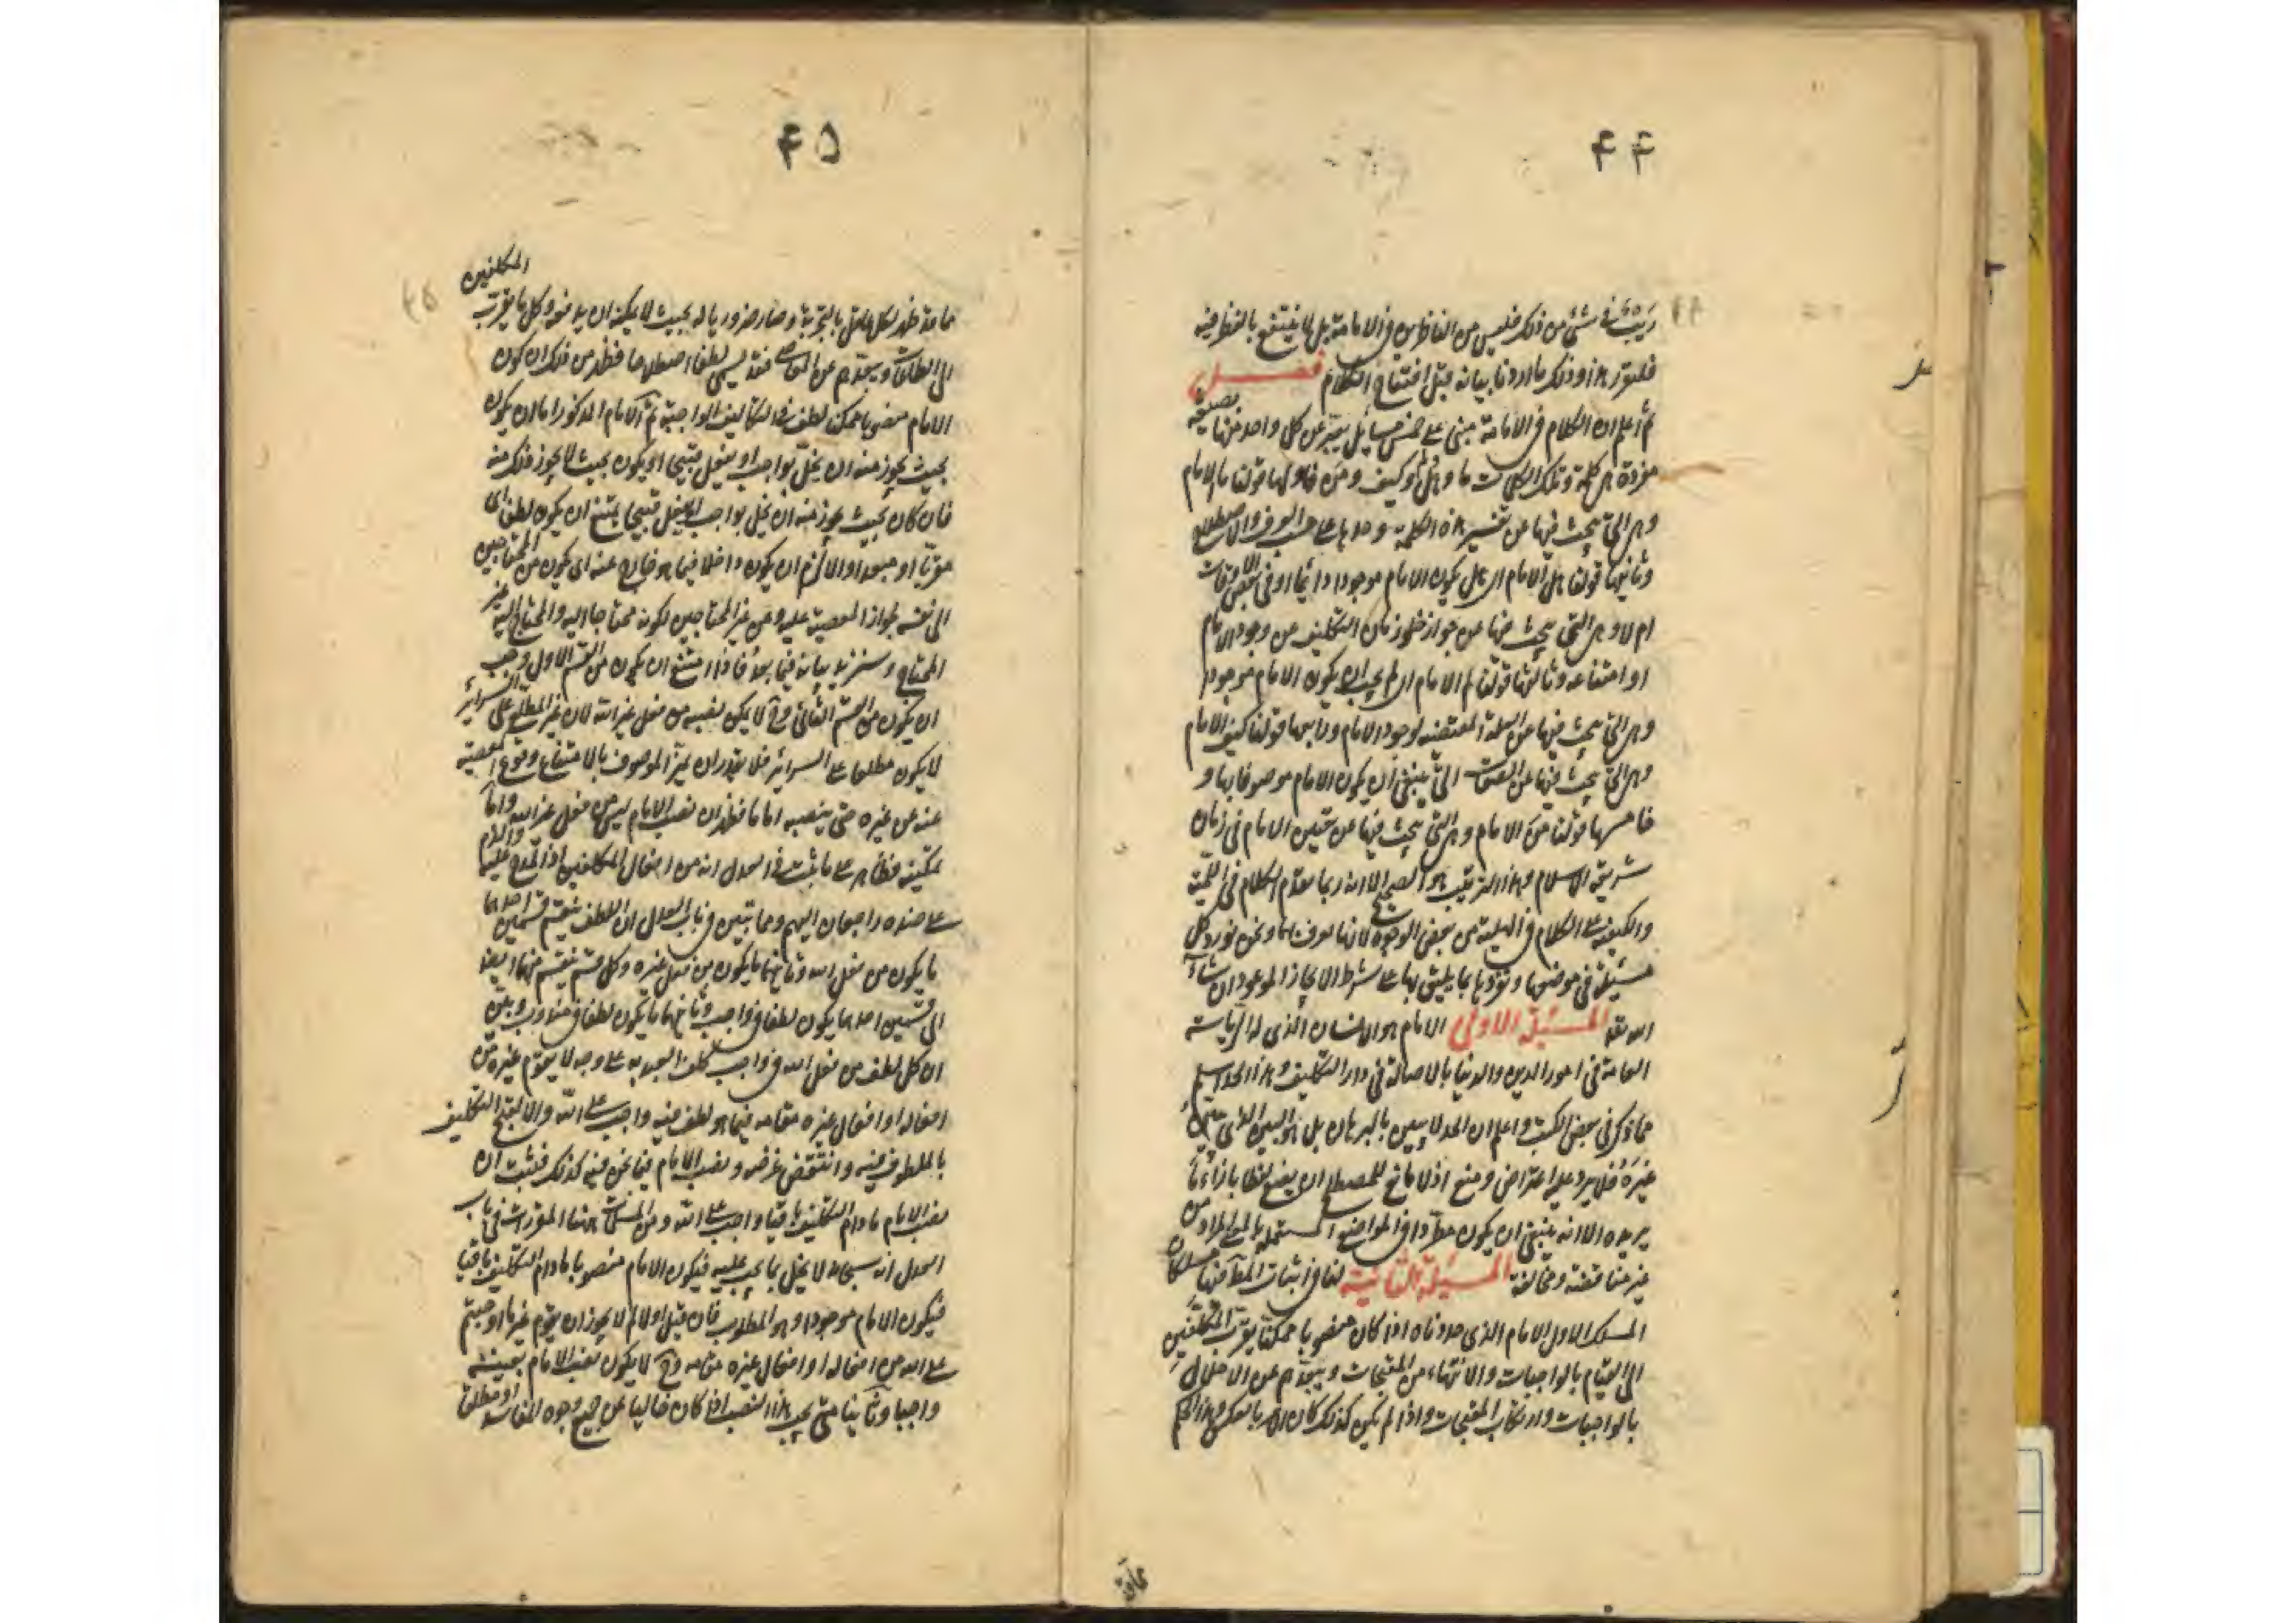 ۴۴
ریب فی شئ من ذلک فلیس من الناظرین فی الامامة بل لا ینتفع بالنظر فیه
فلیتقرر هذا و ذلک ما اردنا بیانه قبل افتتاح الکلام فصــل
ثم اعلم ان الکلام فی الامامة مبنی علی خمس مسایل یعبر عن کل واحد منها بصیغة
مفردة هی کلمة و تلک الکلمات ما و هل و لم و کیف و من فاولها قولنا ما الامام
و هی التی یبحث فیها عن تفسیر هذه الکلمة و حدها علی حسب العرف و الاصطلاح
و ثانیها قولنا هل الامام ای هل یکون الامام موجودا دائما او فی بعض الاوقات
ام لا و هی التی یبحث فیها عن جواز خلو زمان التکلیف من وجود الامام
او امتناعه و ثالثها قولنا لم الامام ای لم یجب ان یکون الامام موجودا
و هی التی یبحث فیها عن العلة المقتضیة لوجود الامام و رابعها قولنا کیف الامام
و هی التی یبحث فیها عن الصفات التی ینبغی ان یکون الامام موصوفا بها و
خامسها قولنا من الامام و هی التی یبحث فیها عن تعیین الامام فی زمان
شریعة الاسلام و هذا الترتیب هو الصحیح الا انه ربما یقدم الکلام فی اللمیة
و الکیفیة علی الکلام فی الهلیة من بعض الوجوه لانها تعرف بها و نحن نورد کل
مسئلة فی موضعها و نقررها بما یلیق بها علی شرط الایجاز الموعود ان شاء
الله تعا المسئلة الاولی الامام هو الانسان الذی له الریاسة
العامة فی امور الدین و الدنیا بالاصالة فی دار التکلیف و هذا الحد اسلم
مما ذکر فی بعض الکتب و اعلم ان الحد لا یبین بالبرهان بل هو المبین الذی یبین
غیره فلا یرد علیه اعتراض و منع اذ لا مانع للمصطلح ان یضع لفظا بازاء ما
یریده الا انه ینبغی ان یکون مطردا فی المواضع المستعملة بالمعنی المراد من
غیر مناقضة و مخالفة المسئلة الثانیة لنا فی اثبات المط فیها مسلکان
المسلک الاول الامام الذی حددناه اذا کان منصوبا ممکنا یقرب المکلفین
الی القیام بالواجبات و الانتهاء من المقبحات و یبعدهم عن الاخلال
بالواجبات و ارتکاب المقبحات و اذا لم یکن کذلک کان الامر بالعکس و هذا الحکم
۴۵
المکلفین
مما قد ظهر لکل عاقل بالتجربة و صار ضروریا له بحیث لا یمکنه ان یدفعه و کل ما یقرب
الی الطاعات و یبعدهم عن المعاصی فقد یسمی لطفا اصطلاحا فظهر من ذلک ان کون
الامام منصوبا ممکنا لطف فی التکالیف الواجبة ثم الامام المذکور اما ان یکون
بحیث یجوز منه ان یخل بواجب او یفعل قبیحا او یکون بحیث لا یجوز ذلک منه
فان کان بحیث یجوز منه ان یخل بواجب او یفعل قبیحا یمتنع ان یکون لطفا ای
مقربا او مبعدا و الا لزم ان یکون داخلا فیما هو خارج عنه ای یکون من المحتاجین
الی نفسه لجواز المعصیة علیه و من غیر المحتاجین لکونه محتاجا الیه و المحتاج الیه غیر
المحتاج و سنزید بیانه فیما بعد فاذا امتنع ان یکون من القسم الاول وجب
ان یکون من القسم الثانی و ح لا یمکن نصبه من فعل غیر الله لان غیر المطلع علی السرائر
لا یکون مطلعا علی السرائر فلا یقدر ان یمیز الموصوف بالامتناع وقوع المعصیة
عنه عن غیره حتی ینصبه اماما فظهر ان نصب الامام لیس من فعل غیر الله و اما
تمکینه فظاهر علی ما ثبت فی العدل انه من افعال المکلفین اذ المدح علیها و الذم
علی ضده راجعان الیهم و مما تبین فی باب العدل ان اللطف ینقسم قسمین احدهما
ما یکون من فعل الله و ثانیهما ما یکون من فعل غیره و کل قسم ینقسم منهما ایضا
الی قسمین احدهما یکون لطفا فی واجب و ثانیهما ما یکون لطفا فی مندوب و تبین
ان کل لطف من فعل الله فی واجب کلف العبد به علی وجه لا یقوم غیره من
افعاله او افعال غیره مقامه فیما هو لطف فیه واجب علی الله و الا لقبح التکلیف
بالملطوف فیه و انتقض غرضه و نصب الامام فیما نحن فیه کذلک فثبت ان
نصب الامام ما دام التکلیف باقیا واجب علی الله و من المسلمات ههنا المقررات فی باب
العدل انه سبحانه لا یخل بما یجب علیه فیکون الامام منصوبا ما دام التکلیف باقیا
فیکون الامام موجودا و هو المطلوب فان قیل اولا لم لا یجوز ان یقوم غیر ما اوجبتم
علی الله من افعاله او افعال غیره مقامه و ح لا یکون نصب الامام بعینه
واجبا و ثانیا متی یجب هذا النصب اذا کان خالیا عن جمیع وجوه المفاسد او مطلقا